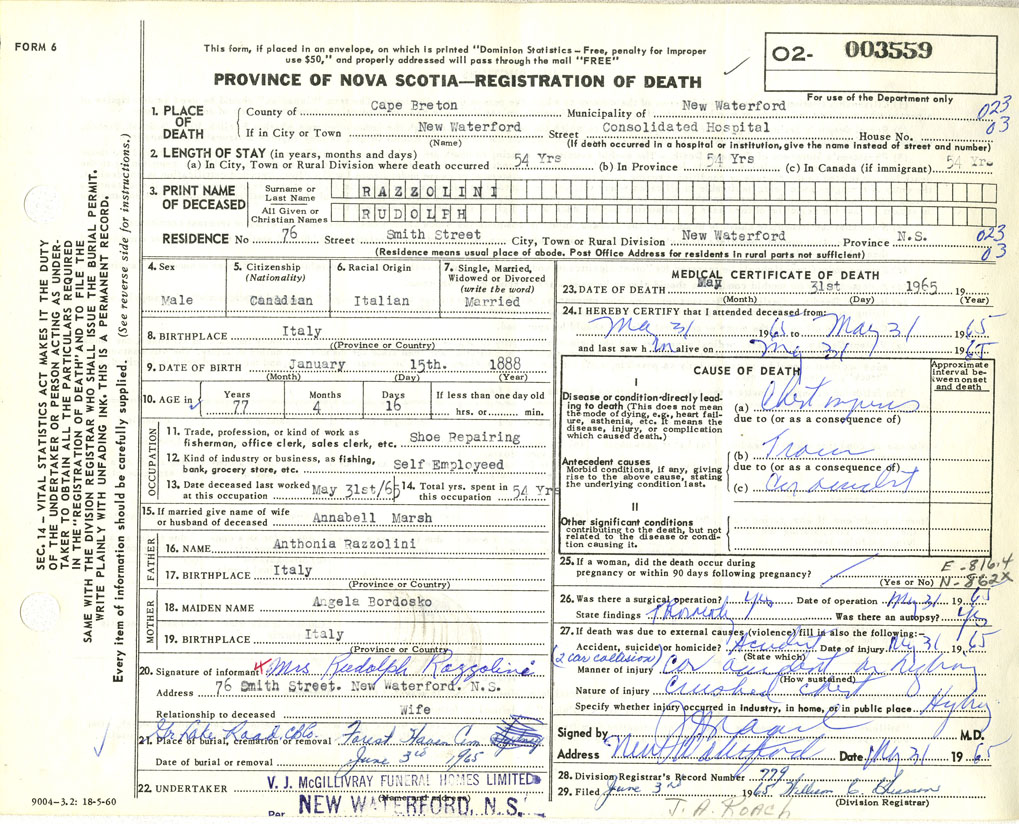 FORM 6
This form, if placed in an envelope, on which is printed "Dominion Statistics – Free, penalty for improper
use $50," and properly addressed will pass through the mail "FREE"
PROVINCE OF NOVA SCOTIA—REGISTRATION OF DEATH
02- 003559
For use of the Department only
SEC. 14 – VITAL STATISTICS ACT MAKES IT THE DUTY
OF THE UNDERTAKER OR PERSON ACTING AS UNDER-
TAKER TO OBTAIN ALL THE PARTICULARS REQUIRED
IN THE "REGISTRATION OF DEATH" AND TO FILE THE
SAME WITH THE DIVISION REGISTRAR WHO SHALL ISSUE THE BURIAL PERMIT.
WRITE PLAINLY WITH UNFADING INK. THIS IS A PERMANENT RECORD.
Every item of information should be carefully supplied. (See reverse side for instructions.)
1. PLACE OF DEATH
County of Cape Breton Municipality of New Waterford 023
If in City or Town New Waterford Street Consolidated Hospital House No. 03
(Name) (If death occurred in a hospital or institution, give the name instead of street and number)
2. LENGTH OF STAY (in years, months and days)
(a) In City, Town or Rural Division where death occurred 54 Yrs (b) In Province 54 Yrs (c) In Canada (if immigrant) 54 Yrs
3. PRINT NAME OF DECEASED
Surname or Last Name RAZZOLINI
All Given or Christian Names RUDOLPH
RESIDENCE No 76 Street Smith Street City, Town or Rural Division New Waterford Province N.S. 023
(Residence means usual place of abode. Post Office Address for residents in rural parts not sufficient) 03
4. Sex Male
5. Citizenship (Nationality) Canadian
6. Racial Origin Italian
7. Single, Married, Widowed or Divorced (write the word) Married
8. BIRTHPLACE Italy
((Province or Country)
9. DATE OF BIRTH January 15th. 1888
(Month) (Day) (Year)
10. AGE in Years 77 Months 4 Days 16 If less than one day old hrs. or min.
OCCUPATION
11. Trade, profession, or kind of work as
fisherman, office clerk, sales clerk, etc. Shoe Repairing
12. Kind of industry or business, as fishing,
bank, grocery store, etc. Self Employeed
13. Date deceased last worked
at this occupation May 31st/65
14. Total yrs. spent in
this occupation 54 Yrs
15. If married give name of wife
or husband of deceased Annabell Marsh
FATHER
16. NAME Anthonia Razzolini
17. BIRTHPLACE Italy
(Province or Country)
MOTHER
18. MAIDEN NAME Angela Bordosko
19. BIRTHPLACE Italy
(Province or Country)
20. Signature of informant Mrs Rudolph Razzolini
Address 76 Smith Street. New Waterford. N.S.
Relationship to deceased Wife
21. Place of burial, cremation or removal Forest Haven Cem
Date of burial or removal June 3rd 1965
22. UNDERTAKER V. J. McGILLIVRAY FUNERAL HOMES LIMITED
(Name and address)
Per NEW WATERFORD, N.S.
9004-3.2: 18-5-60
MEDICAL CERTIFICATE OF DEATH
23. DATE OF DEATH May 31st 1965 19
(Month) (Day) (Year)
24. I HEREBY CERTIFY that I attended deceased from:
May 31 1965 to May 31 1965
and last saw h im alive on May 31 1965
CAUSE OF DEATH
Approximate interval between onset and death
I
Disease or condition directly lead-
ing to death (This does not mean
the mode of dying, e.g., heart fail-
ure, asthenia, etc. It means the
disease, injury, or complication
which caused death.)
(a) Chest
due to (or as a consequence of)
Antecedent causes
Morbid conditions, if any, giving
rise to the above cause, stating
the underlying condition last.
(b)
due to (or as a consequence of)
(c) Car accident
II
Other significant conditions
contributing to the death, but not
related to the disease or condi-
tion causing it.
25. If a woman, did the death occur during
pregnancy or within 90 days following pregnancy?
(Yes or No)
E-816.4
N-862X
26. Was there a surgical operation? yes Date of operation May 31 1965
State findings Was there an autopsy? yes
27. If death was due to external causes (violence) fill in also the following:—
Accident, suicide or homicide? Accident Date of injury May 31 1965
(State which)
(2 car collision) Manner of injury Car accident on hyway
(How sustained)
Nature of injury Crushed chest
Specify whether injury occurred in industry, in home, or in public place Hyway
Signed by M.D.
Address New Waterford Date May 31 1965
28. Division Registrar's Record Number 779
29. Filed June 3rd 1965 William C.
(Division Registrar)
J. A. ROACH